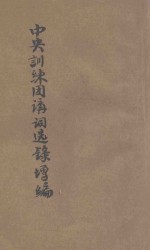 中央訓練團講詞選錄增編